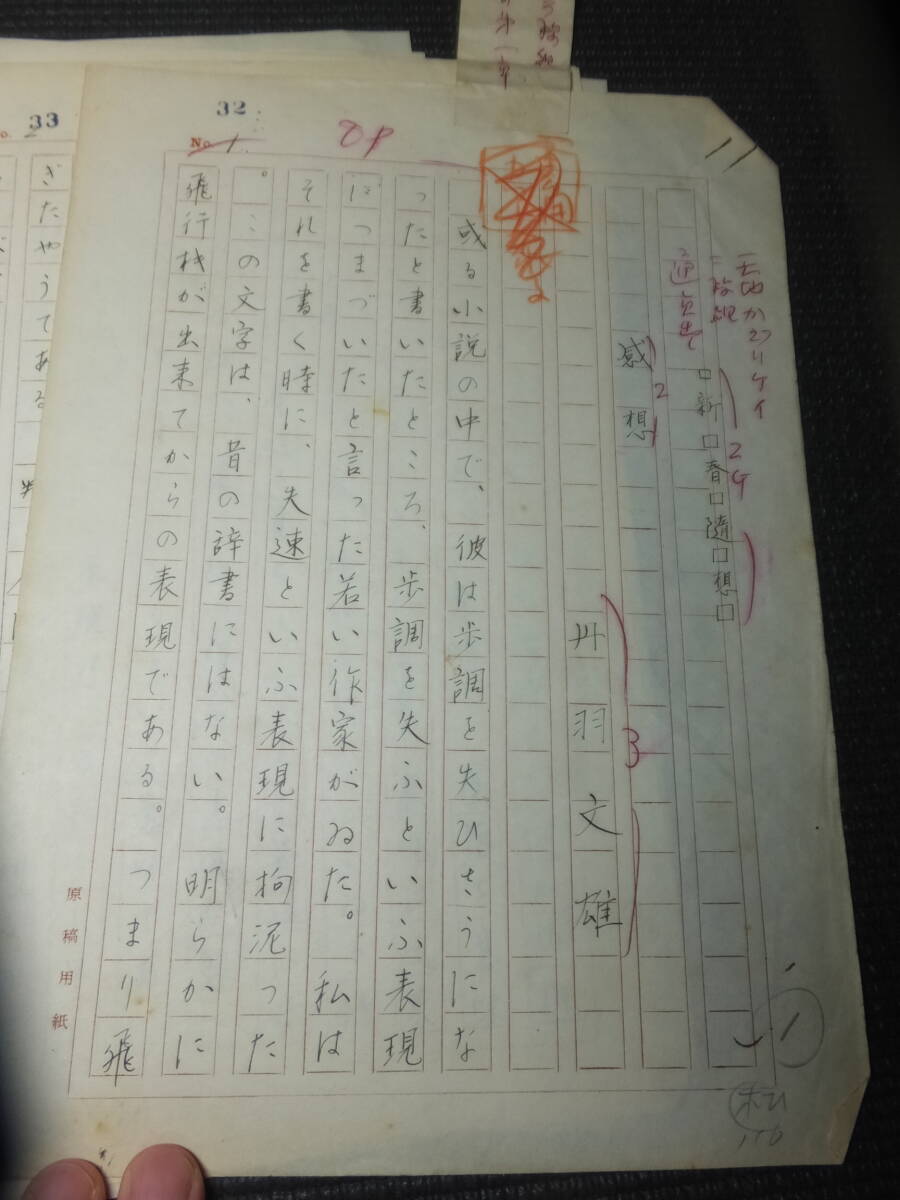 □新□春□隨□想□
感想
丹羽文雄
或る小説の中で、彼は歩調を失ひさうにな
ったと書いたところ、歩調を失ふといふ表現
につまづいたと言った若い作家がゐた。私は
それを書く時に、失速といふ表現に拘泥った
。この文字は、昔の辞書にはない。明らかに
飛行機が出来てからの表現である。つまり飛
原稿用紙
32
No. 1
2
3
1
33
ぎたやうである